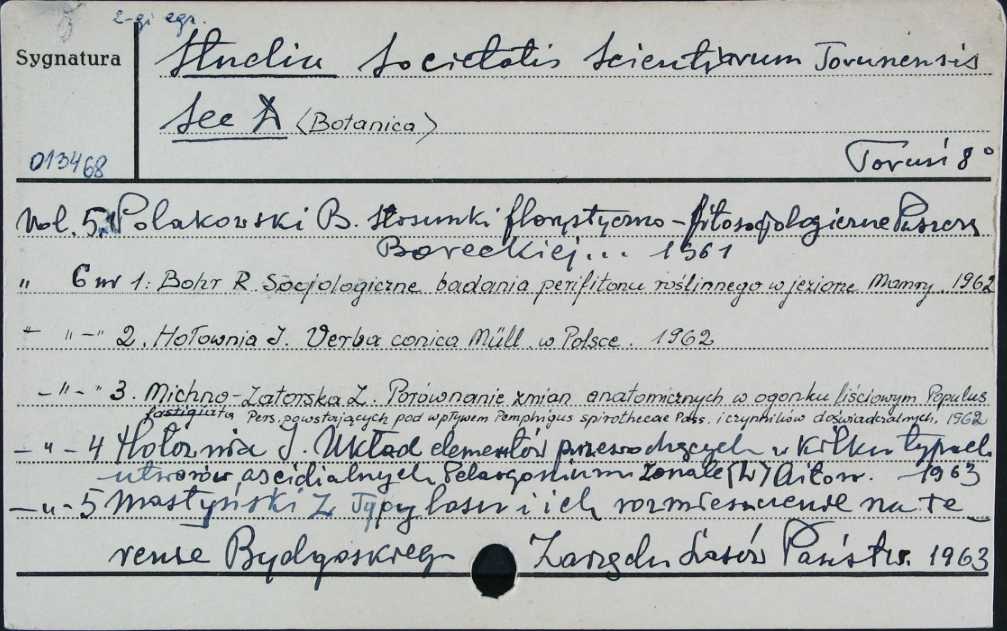 2-gi egz.
Sygnatura
Studia Societatis Scientiarum Torunensis
Sec D (Botanica)
013468
Toruń 8°
Vol. 5. Polakowski B. Stosunki florystyczno-fitosocjologiczne Puszczy
Boreckiej... 1961
" 6 nr 1: Bohr R Socjologiczne badania perifitonu roślinnego w jeziorze Mamry. 1962
" "-" 2. Hołownia J. Verba conica Müll. w Polsce. 1962
-"-" 3. Michno-Zatorska Z. Porównanie zmian anatomicznych w ogonku liściowym Populus
fastigiata Pers. powstających pod wpływem Pemphigus spirothecae Pass. i czynników doświadczalnych, 1962
-"- 4 Hołownia J. Układ elementów przewodzących w kilku typach
utworów ascidialnych Pelargonium zonale (L) Aitow. 1963
-"- 5 Mastyński Z Typy lasu i ich rozmieszczenie na te-
renie Bydgoskiego Zarządu Lasów Państw. 1963